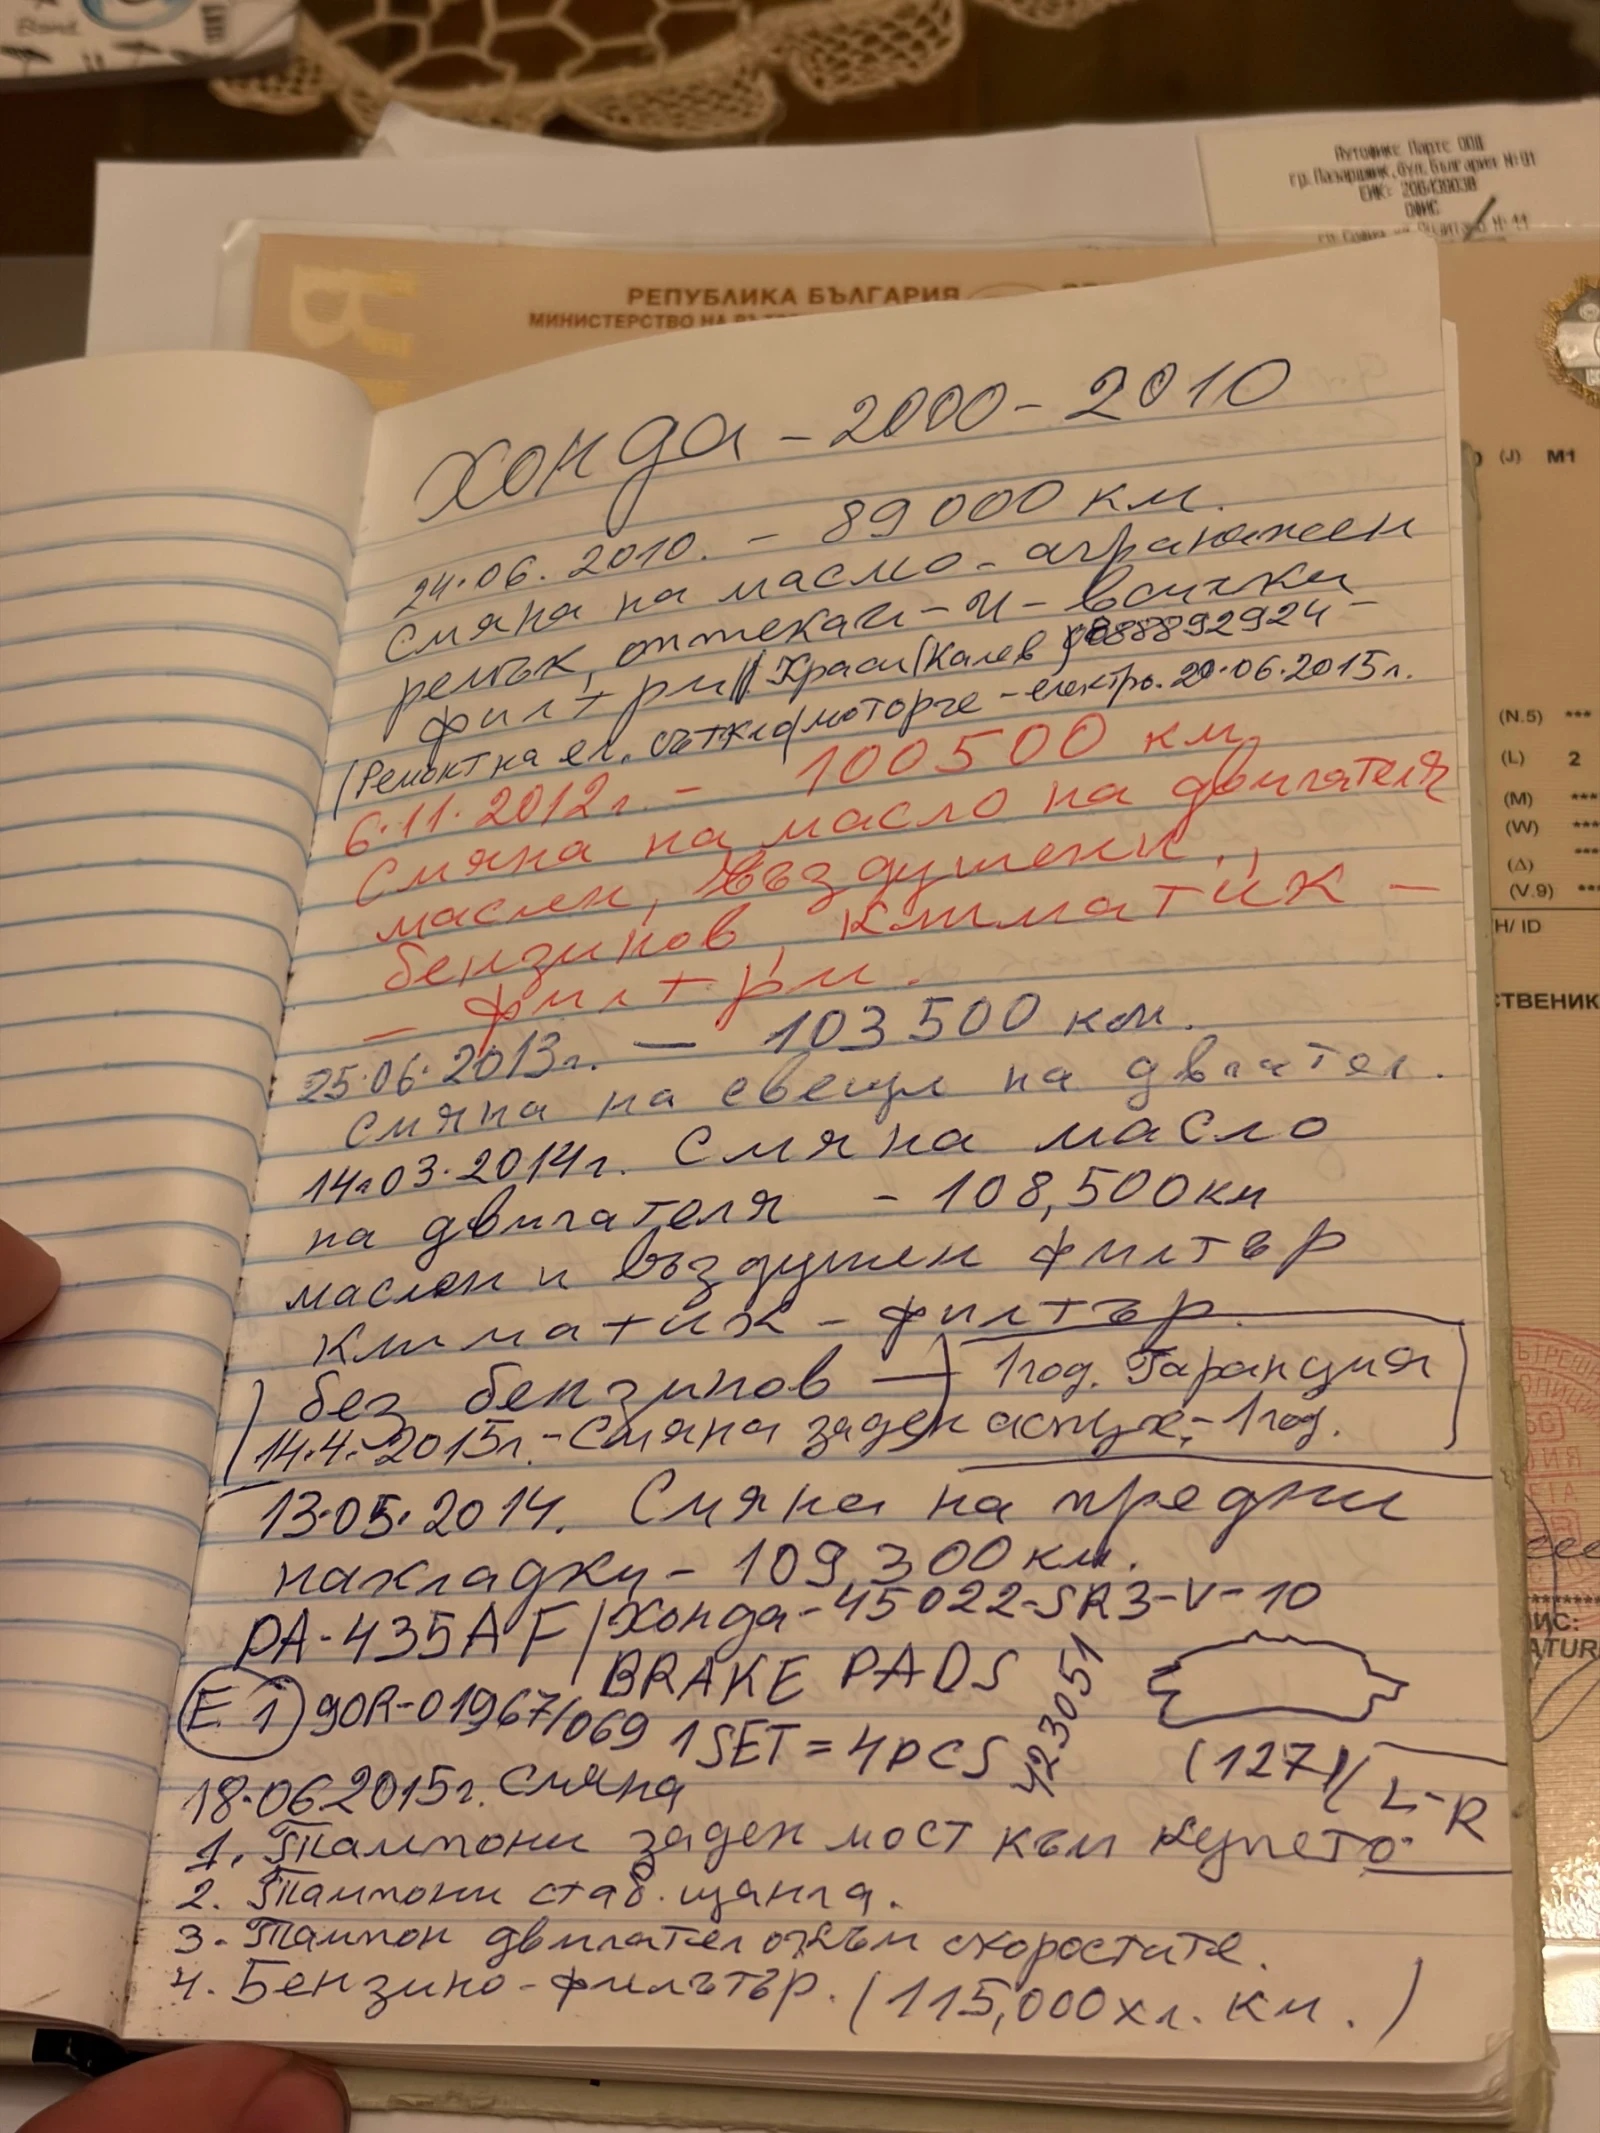 Band
Аутофикс Партс ООД
гр.Пазарджик,бул.България №91
ЕИК:
ОФИС
РЕПУБЛИКА БЪЛГАРИЯ
МИНИСТЕРСТВО НА
(J) M1
(N.5) ***
(L) 2
(M) ***
(W) ***
(Δ) ***
(V.9) **
Н/ ID
СТВЕНИК
Хонда – 2000 – 2010
24.06.2010. – 89000 км.
смяна на масло – ангранажен
ремък, оптекачи – и – всички
филтри // Краси/Калев/ 088892924 –
/Ремонт на ел. стъкло/моторче – електро. 20.06.2015г.
6.11.2012г. – 100500 км.
Смяна на масло на двигателя
маслен, въздушен,
бензинов, климатик –
– филтри.
25.06.2013г. – 103500 км.
смяна на свещи на двигател.
14.03.2014г. Смяна масло
на двигателя – 108,500км
маслен и въздушен филтър
климатик – филтър.
без бензинов – 1год. Гаранция
14.4.2015г. – Смяна заден аспух – 1год.
13.05.2014. Смяна на предни
накладки – 109,300км.
PA-435AF/Хонда-45022-SR3-V-10
BRAKE PADS
E 1 90R-01967/069 1SET = 4PCS 423051
(127) (L-R
18.06.2015г. смяна
1. Тампони заден мост към купето.
2. Тампони стаб. щанга.
3. Тампон двигател откъм скоростите.
4. Бензино-филътър. (115,000хл. км.)